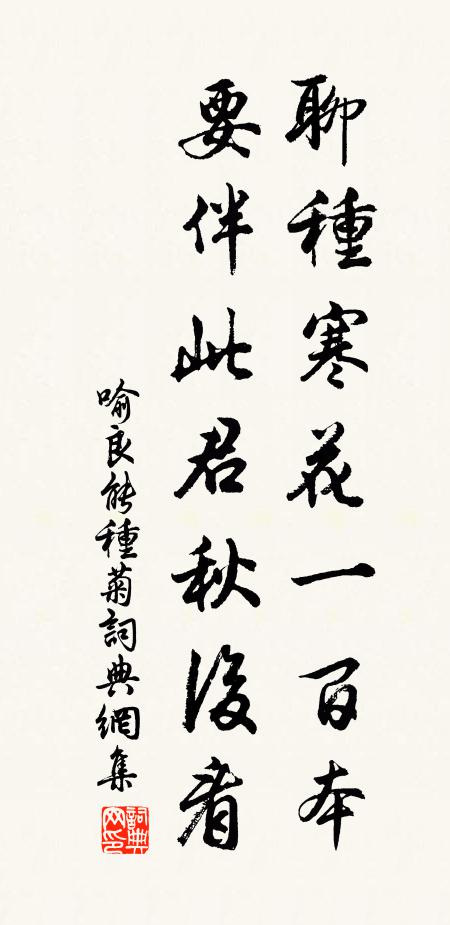 聊種寒花一百本
要伴此君秋後看
喻良能種菊詞典網集
詞典網印